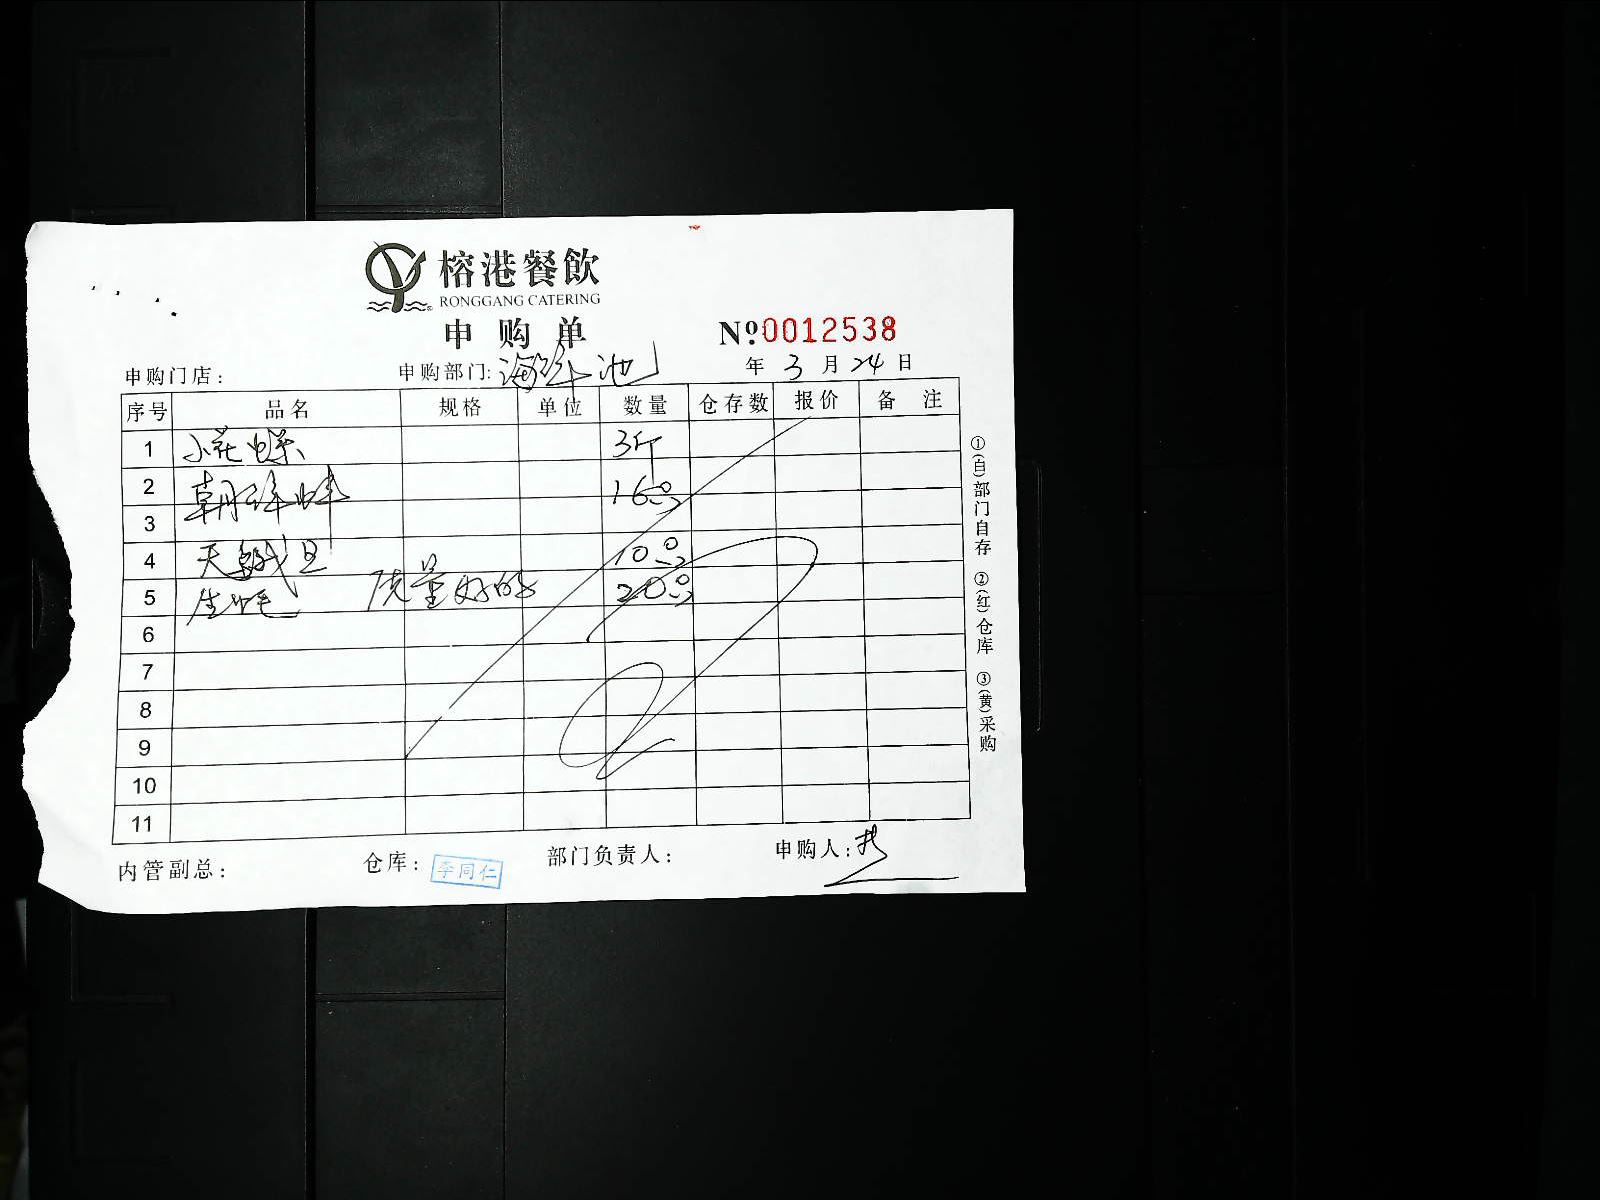 榕港餐飲
RONGGANG CATERING
申购单
№0012538
申购门店：
申购部门：海鲜池
年 3 月 24 日
序号 品名 规格 单位 数量 仓存数 报价 备注
1 小花螺 3斤
2 16只
3
4 天鹅旦 10只
5 生蚝 质量好的 20只
6
7
8
9
10
11
①(白)部门自存 ②(红)仓库 ③(黄)采购
内管副总：
仓库：李同仁
部门负责人：
申购人：